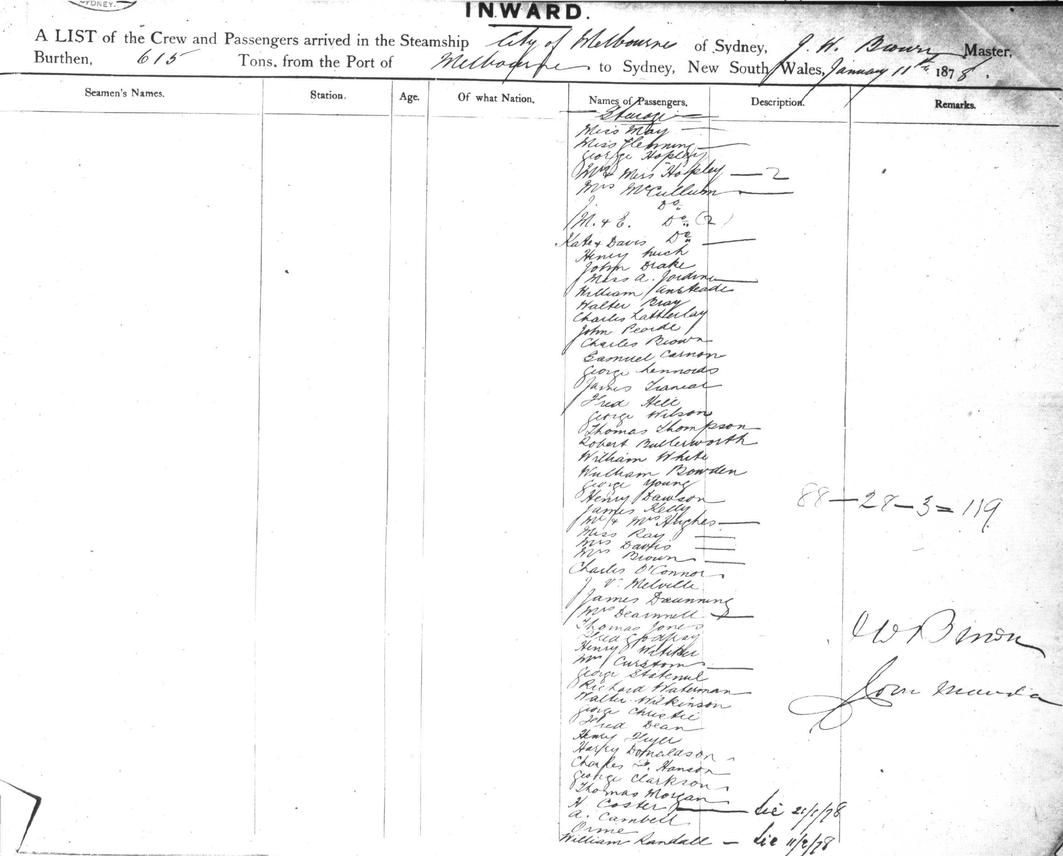 SYDNEY.
INWARD.
A LIST of the Crew and Passengers arrived in the Steamship City of Melbourne of Sydney, J. W. Brown Master,
Burthen, 615 Tons, from the Port of Melbourne to Sydney, New South Wales, January 11th 1878.
Seamen's Names. Station. Age. Of what Nation. Names of Passengers. Description. Remarks.
Steerage
Miss May
Miss Flemming
George Hopley
Mrs & Miss Hopley — 2
Mrs McCullum
J. Do
M. & E. Do (2)
Kate & Davis Do
Henry
John Drake
Miss A. Jordine
William
Walter Bray
Charles Latherlay
John
Charles Brown
Samuel Carnon
George Lennords
James
Fred Hill
George Wilson
Thomas Thompson
Robert Butterworth
William White
William Bowden
George Young
Henry Dawson
James Kelly
Mr & Mrs Hughes
Miss Ray
Mrs Davis
Mrs Brown
Charles O'Connor
J. V. Melville
James
Mrs
Thomas Jones
Fred Godfrey
Henry
Mrs
George
Richard Waterman
Walter Wilkinson
George Christie
Fred Dean
Henry
Harry Donaldson
Charles Hanson
George Clarkson
Thomas Morgan
H Coster — Lic 21/1/78
A. Cambell
Orme
William Randall — Lic 11/2/78
88 — 28 — 3 = 119
W Brown
John